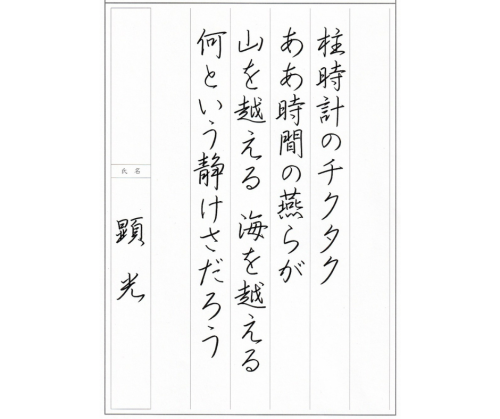 柱時計のチクタク
ああ時間の燕らが
山を越える 海を越える
何という静けさだろう
氏名
顕光